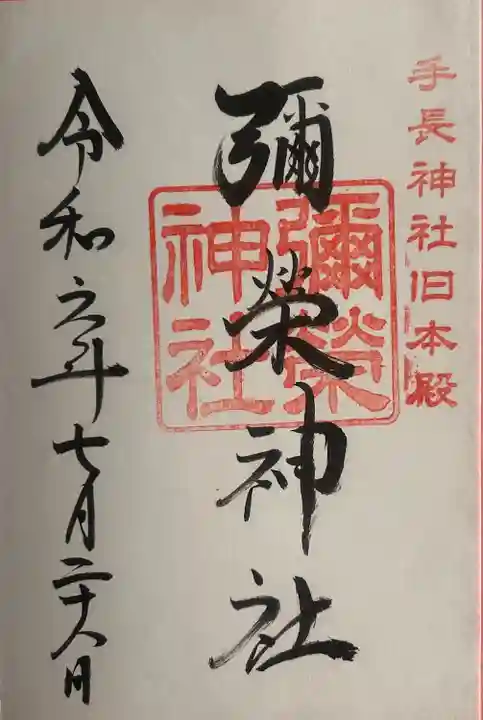 手長神社旧本殿
彌榮神社
彌榮神社
令和六年七月二十八日